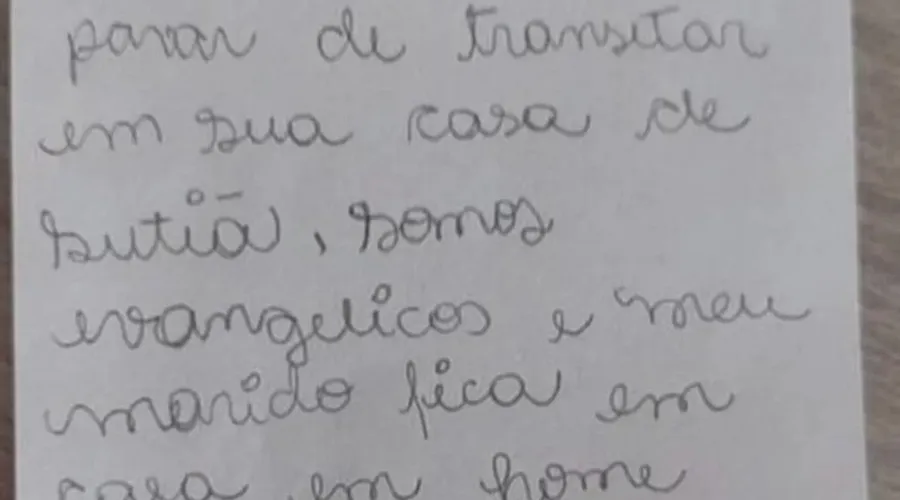 parar de transitar
em sua casa de
sutiã, somos
evangelicos e meu
marido fica em
casa em home